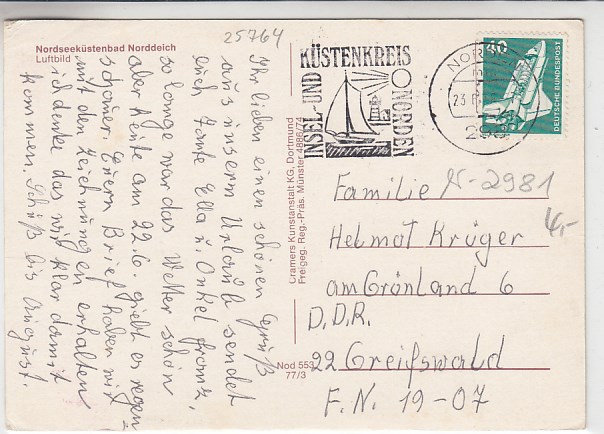 25764
Nordseeküstenbad Norddeich
Luftbild
Ihr lieben einen schönen Gruß
aus unserm Urlaub sendet
euch Tante Ella u. Onkel Franz,
so lange war das Wetter schön
aber heute am 22.6. giebt es regen
schauer. Euern Brief haben wir
mit den Zeichnungen erhalten
ich denke das wir klar damit
kommen. Tschüß bis August.
Cramers Kunstanstalt KG, Dortmund
Freigeg. Reg.-Präs. Münster 4886/74
Nod 553
77/3
INSEL- UND KÜSTENKREIS NORDEN
NOR
23
298
40
DEUTSCHE BUNDESPOST
N-2981
4,-
Familie
Helmut Krüger
am Grönland 6
D.D.R.
22 Greifswald
F.N. 19-07